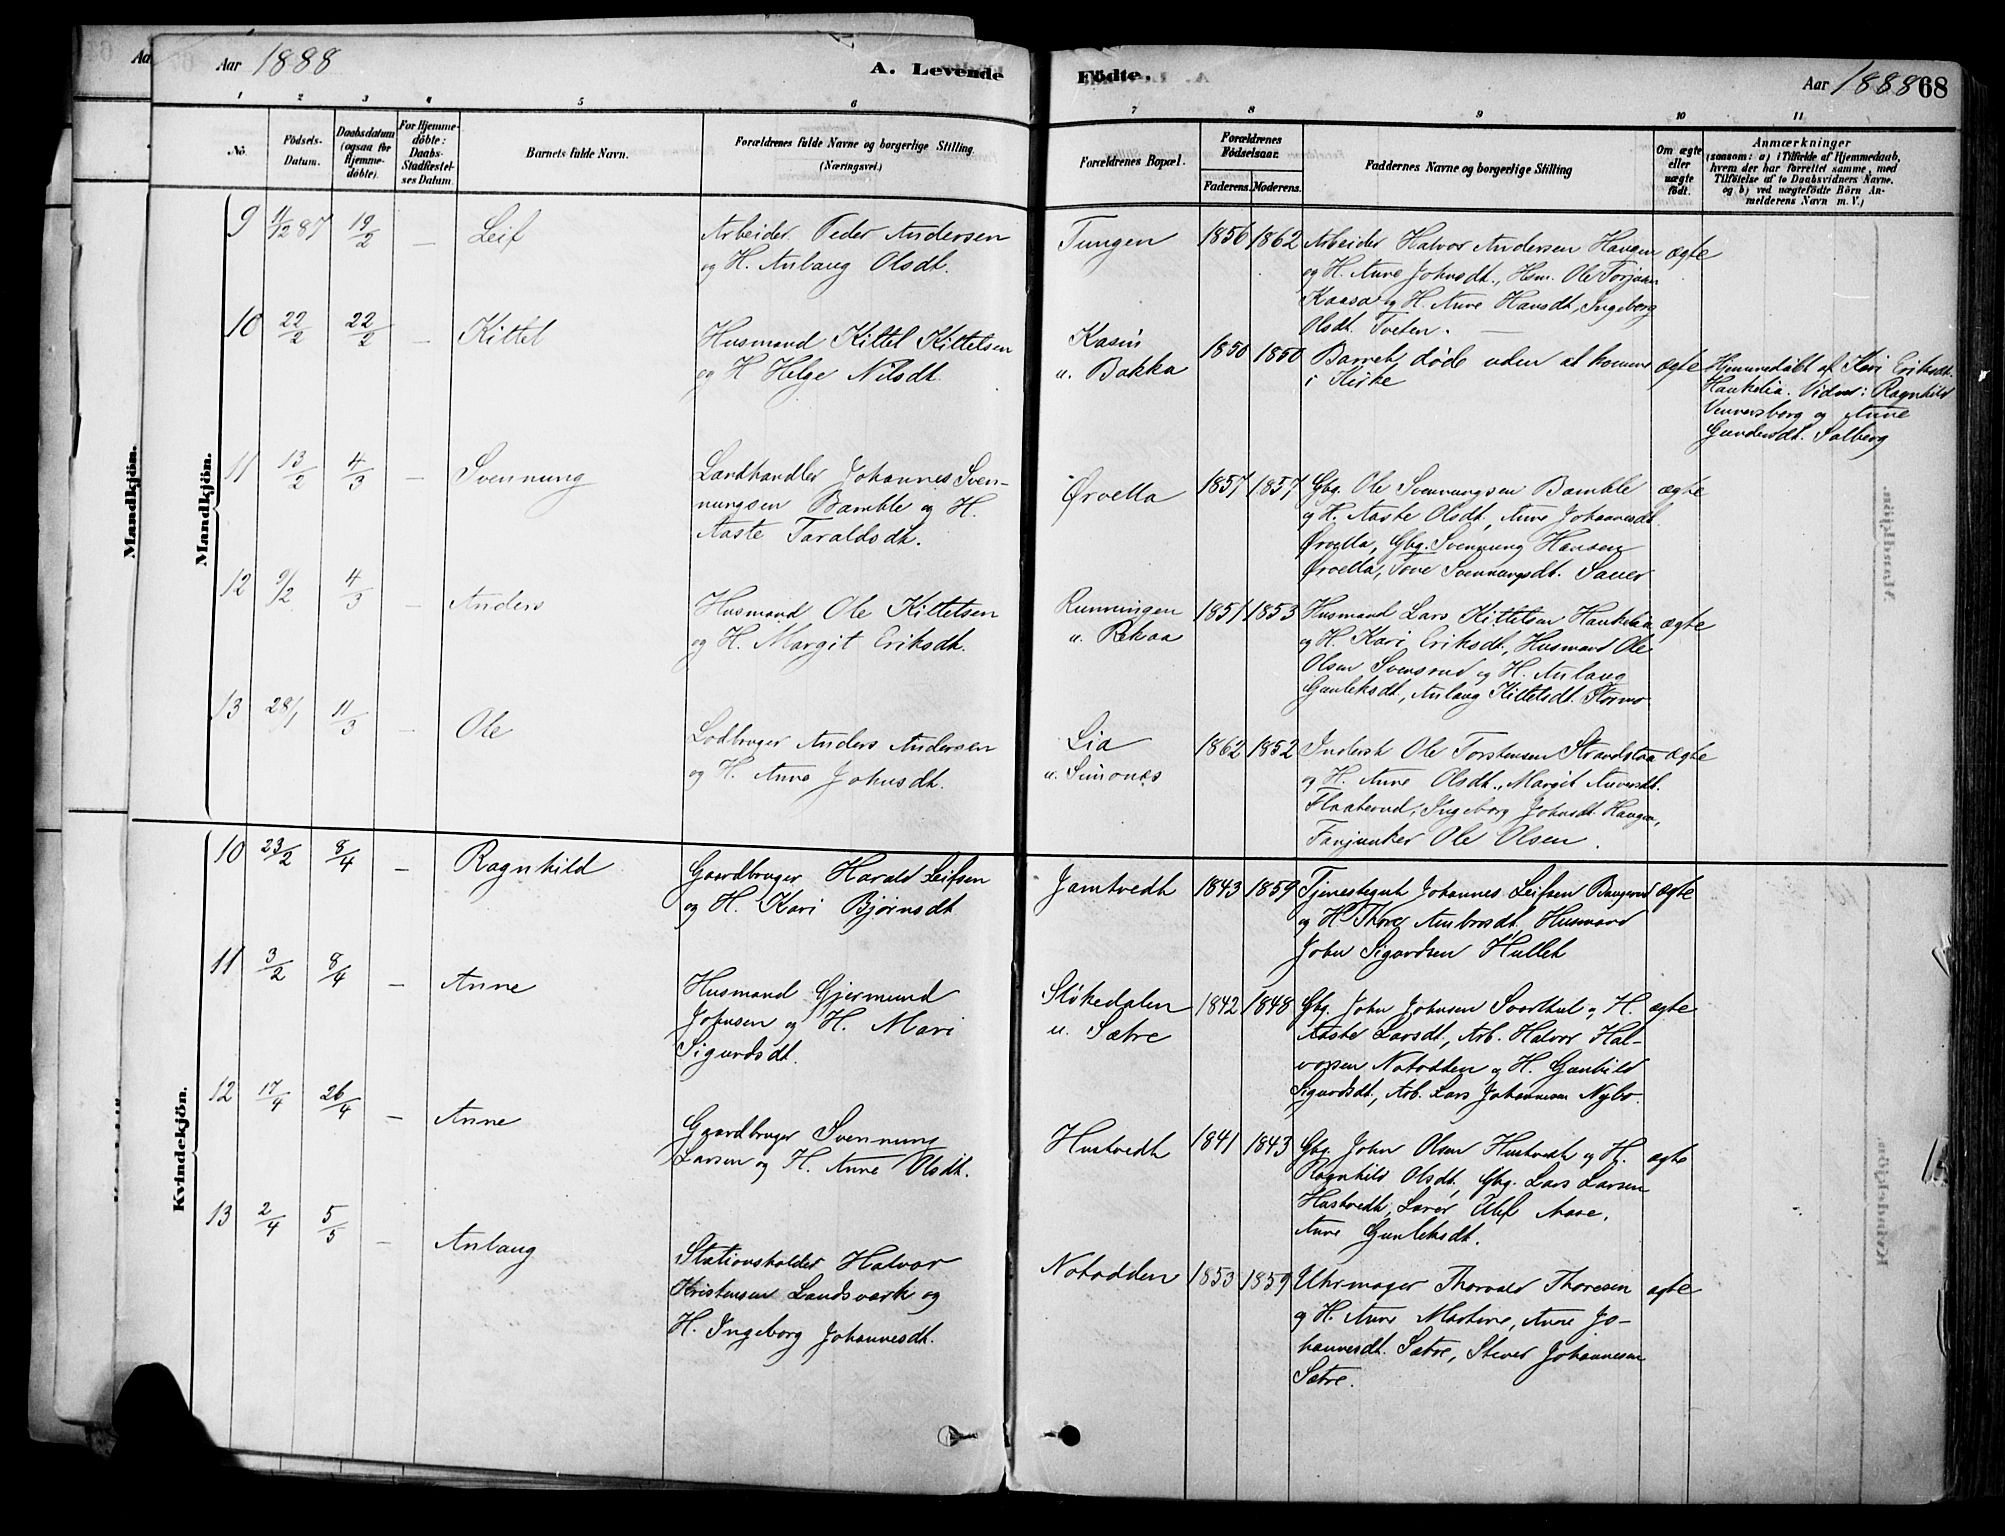 Aar 1888
A. Levende
Födte.
Aar 1888
68
1 2 3 4 5 6 7 8 9 10 11
No.
Födsels-
Datum.
Daabsdatum
(ogsaa for
Hjemme-
döbte).
For Hjemme-
döbte:
Daabs-
Stadfæstel-
ses Datum.
Barnets fulde Navn.
Forældrenes fulde Navne og borgerlige Stilling.
(Næringsvei.)
Forældrenes Bopæl.
Forældrenes
Födselsaar.
Faderens. Moderens.
Faddernes Navne og borgerlige Stilling
Om ægte
eller
uægte
födt.
Anmærkninger
(saasom: a) i Tilfælde af Hjemmedaab,
hvem der har forrettet samme, med
Tilföielse af to Daabsvidners Navne,
og b) ved uægtefödte Börn An-
melderens Navn m. V.)
Mandkjön.
Mandkjön.
9 11/12 87 19/2 — Leif
Arbeider Peder Andersen
og H. Anlaug Olsdt.
Tungen 1856 1862
Arbeider Halvor Andersen Haugen
og H. Anne Johnsdt., Hsm. Ole Torjussen
Kaasa og H. Anne Hansdt, Ingeborg
Olsdt. Tveten. —
ægte
10 22/2 22/2 — Kittel
Husmand Kittel Kittelsen
og H Helge Nilsdt.
Kasin
u. Bakka
1850 1850
Barnet døde uden at komme
i Kirke
ægte
Hjemmedøbt af Kari Eriksdt.
Haukelia. Vidner: Ragnhild
Vennersborg og Anne
Gundersdt. Solberg
11 13/2 4/3 — Svennung
Landhandler Johannes Sven-
nungsen Bamble og H.
Aaste Taraldsdt.
Ørvella 1857 1857
Gbg. Ole Svennungsen Bamble
og H. Aaste Olsdt, Anne Johannesdt.
Ørvella, Gbg. Svennung Hansen
Ørvella, Tone Svennungsdt. Sauer
ægte
12 9/2 4/3 — Anders
Husmand Ole Kittelsen
og H. Margit Eriksdt.
Runningen
u. Rekaa
1851 1853
Husmand Lars Kittelsen Haukelia
og H. Kari Eriksdt, Husmand Ole
Olsen Svensrud og H. Anlaug
Gunleksdt, Anlaug Kittelsdt. Stormo
ægte
13 28/1 11/3 — Ole
Lodbruger Anders Andersen
og H. Anne Johnsdt.
Lia
u. Simones
1862 1852
Inderst Ole Torstensen Strandstaa
og H. Anne Olsdt., Margit Anversdt.
Flaaterud, Ingeborg Johnsdt. Haugen,
Fanjunker Ole Olsen.
ægte
Kvindekjön.
10 23/2 8/4 — Ragnhild
Gaardbruger Harald Leifsen
og H. Kari Bjørnsdt
Jamtvedt 1843 1859
Tjenestegut Johannes Leifsen Baugerud
og H. Thore Ambrosdt. Husmand
John Sigurdsen Hullet
ægte
11 3/2 8/4 — Anne
Husmand Gjermund
Johnsen og H. Mari
Sigurdsdt.
Støkedalen
u. Sætre
1842 1848
Gbg. John Johnsen Svarthul og H.
Aaste Larsdt., Arb. Halvor Hal-
vorsen Notodden og H. Gunhild
Sigurdsdt., Arb. Lars Johannesen Nybo.
ægte
12 17/4 26/4 — Anne
Gaardbruger Svennung
Larsen og H. Anne Olsdt.
Hustvedt 1841 1843
Gbg. John Olsen Hustvedt og H.
Ragnhild Olsdt, Gbg. Lars Larsen
Hustvedt, Lærer Ulef Aase,
Anne Gunleksdt.
ægte
13 2/4 5/5 — Anlaug
Stationsholder Halvor
Kristensen Landsverk og
H. Ingeborg Johannesdt.
Notodden 1853 1859
Uhrmager Thorvald Thoresen
og H. Anne Martine, Anne Jo-
hannesdt. Sætre, Stener Johannesen
Sætre.
ægte